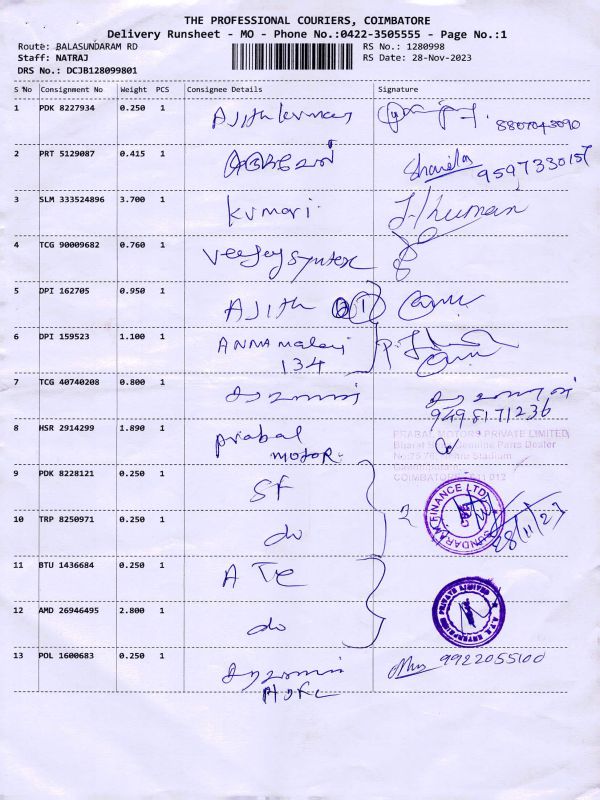 THE PROFESSIONAL COURIERS, COIMBATORE
Delivery Runsheet - MO - Phone No.:0422-3505555 - Page No.:1
Route: BALASUNDARAM RD RS No.: 1280998
Staff: NATRAJ RS Date: 28-Nov-2023
DRS No.: DCJB128099801
S No Consignment No Weight PCS Consignee Details Signature
1 PDK 8227934 0.250 1 Ajithkumar
8807043090
2 PRT 5129087 0.415 1
9597330157
3 SLM 333524896 3.700 1 kumari
4 TCG 90009682 0.760 1 Veejay syntex
5 DPI 162705 0.950 1 AJith
6 DPI 159523 1.100 1 ANNAmalai
134
7 TCG 40740208 0.800 1
9498171236
8 HSR 2914299 1.890 1 prabal
motor.
PRABAL MOTORS PRIVATE LIMITED
COIMBATORE
9 PDK 8228121 0.250 1 SF
SUNDARAM FINANCE LTD
28/11/23
10 TRP 8250971 0.250 1 do
11 BTU 1436684 0.250 1 A TE
12 AMD 26946495 2.800 1 do
13 POL 1600683 0.250 1
9922055100